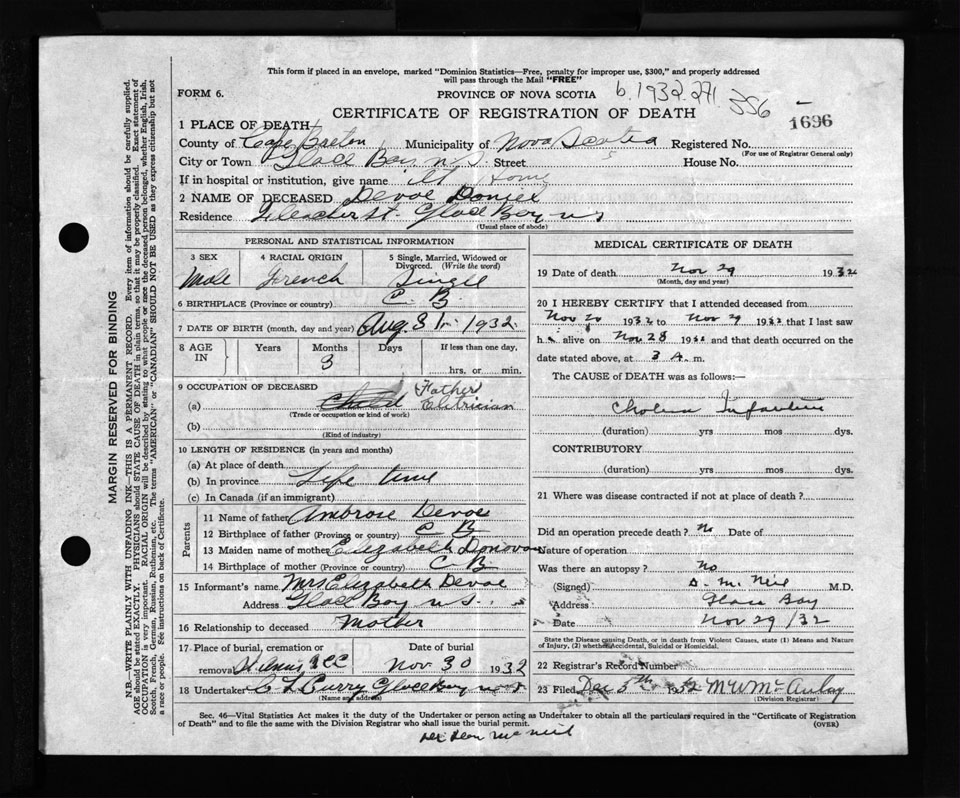 This form if placed in an envelope, marked "Dominion Statistics—Free, penalty for improper use, $300," and properly addressed
will pass through the Mail "FREE"
FORM 6.
PROVINCE OF NOVA SCOTIA
b. 1932. 271. 356
CERTIFICATE OF REGISTRATION OF DEATH
1696
1 PLACE OF DEATH
County of Cape Breton Municipality of Nova Scotia Registered No.
(For use of Registrar General only)
City or Town Glace Bay N.S. Street House No.
If in hospital or institution, give name At Home
2 NAME OF DECEASED Devoe Daniel
Residence St. Glace Bay N S
(Usual place of abode)
PERSONAL AND STATISTICAL INFORMATION
3 SEX 4 RACIAL ORIGIN 5 Single, Married, Widowed or
Divorced. (Write the word)
Male French Single
6 BIRTHPLACE (Province or country) C. B.
7 DATE OF BIRTH (month, day and year) Aug 31 1932
8 AGE IN Years Months Days If less than one day,
3
hrs. or min.
9 OCCUPATION OF DECEASED Father
(a) Child Elitrician
(Trade or occupation or kind of work)
(b)
(Kind of industry)
10 LENGTH OF RESIDENCE (in years and months)
(a) At place of death
(b) In province Life time
(c) In Canada (if an immigrant)
Parents
11 Name of father Ambrose Devoe
12 Birthplace of father (Province or country) C B
13 Maiden name of mother Elizabeth Donovan
14 Birthplace of mother (Province or country) C B
15 Informant's name Mrs Elizabeth Devoe
Address Glace Bay N S.
16 Relationship to deceased Mother
17 Place of burial, cremation or removal Date of burial
Nov 30 1932
18 Undertaker C L Curry Glace Bay N S
(Name and address)
MEDICAL CERTIFICATE OF DEATH
19 Date of death Nov 29 1932
(Month, day and year)
20 I HEREBY CERTIFY that I attended deceased from
Nov 20 1932 to Nov 29 1932 that I last saw
h alive on Nov 28 1932 and that death occurred on the
date stated above, at 3 A. m.
The CAUSE of DEATH was as follows:—
Cholera Infantum
(duration) yrs mos dys.
CONTRIBUTORY
(duration) yrs mos dys.
21 Where was disease contracted if not at place of death?
Did an operation precede death? No Date of
Nature of operation
Was there an autopsy? No
(Signed) D. McNeil M.D.
Address Glace Bay
Date Nov 29/32
State the Disease causing Death, or in death from Violent Causes, state (1) Means and Nature
of Injury, (2) whether Accidental, Suicidal or Homicidal.
22 Registrar's Record Number
23 Filed Dec 5th 1932 M W McAulay
(Division Registrar)
Sec. 46—Vital Statistics Act makes it the duty of the Undertaker or person acting as Undertaker to obtain all the particulars required in the "Certificate of Registration
of Death" and to file the same with the Division Registrar who shall issue the burial permit.
(OVER)
MARGIN RESERVED FOR BINDING
N.B.—WRITE PLAINLY WITH UNFADING INK—THIS IS A PERMANENT RECORD. Every item of information should be carefully supplied.
AGE should be stated EXACTLY. PHYSICIANS should STATE CAUSE OF DEATH in plain terms, so that it may be properly classified. Exact statement of
OCCUPATION is very important. RACIAL ORIGIN will be described by stating to what people or race the deceased person belonged, whether English, Irish,
Scotch, French, German, Russian, Ruthenian, etc. The terms "AMERICAN" or "CANADIAN" SHOULD NOT BE USED as they express citizenship but not
a race or people. See instructions on back of Certificate.